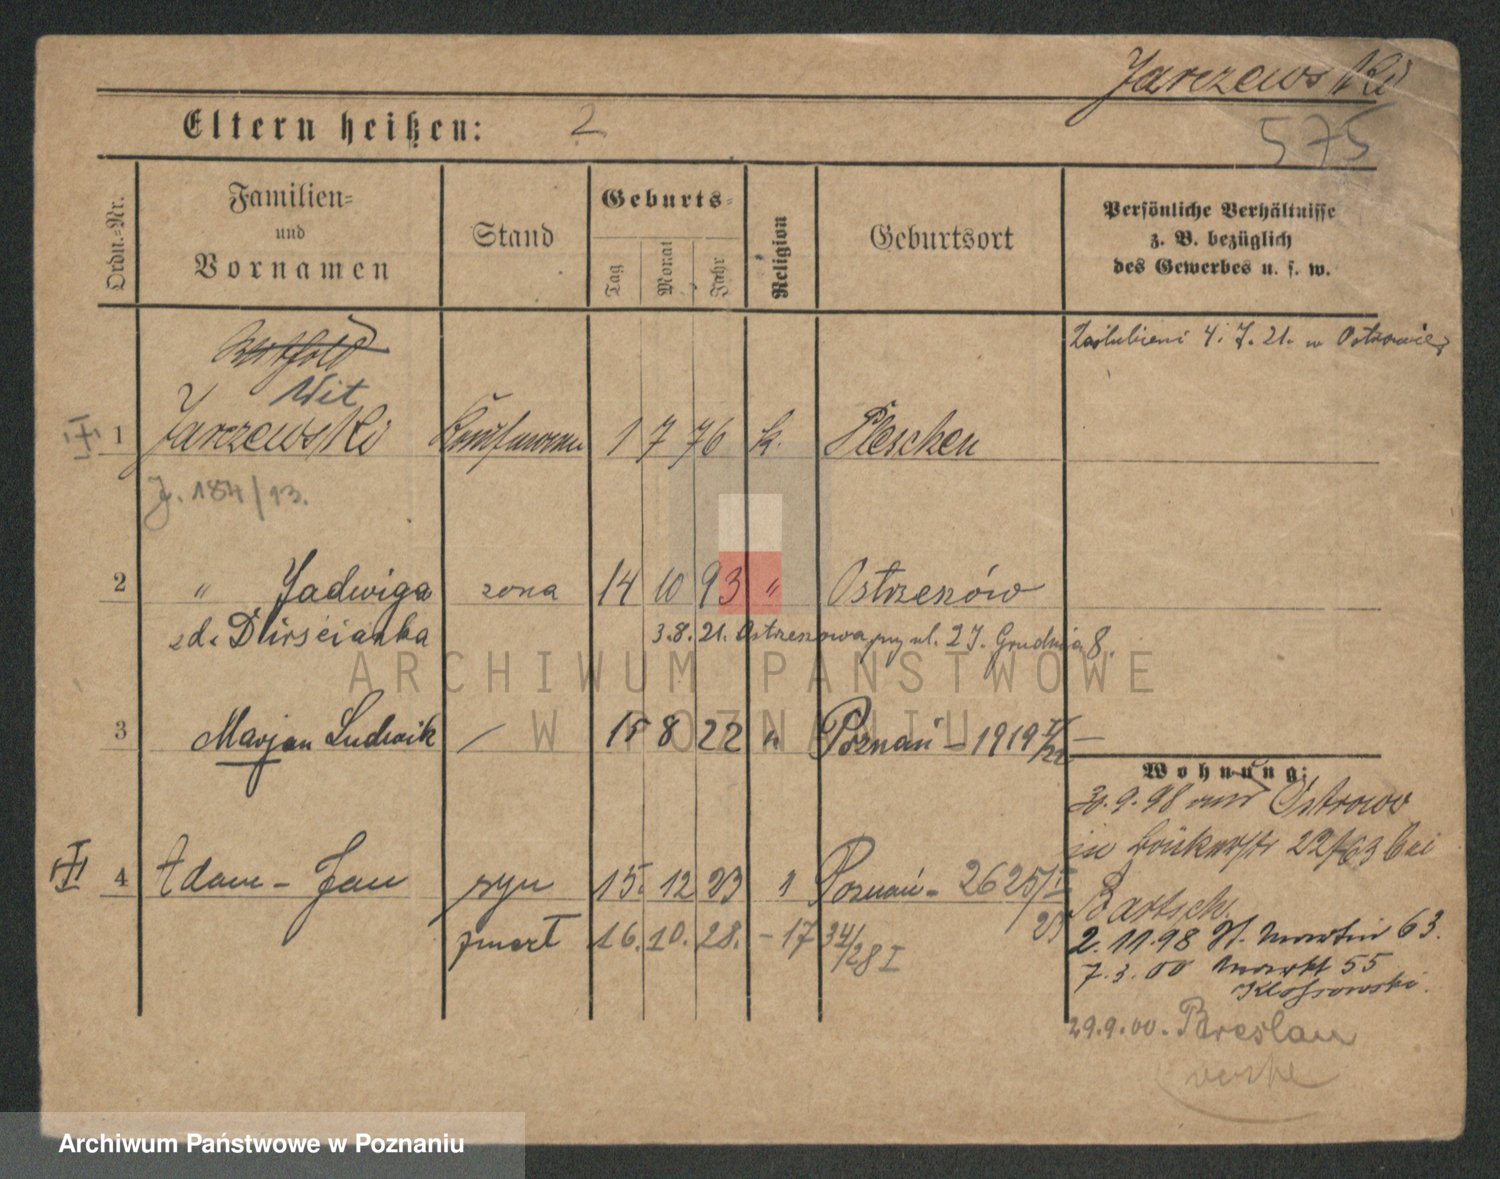 Jarzewski
575
Eltern heißen: 2
Ordn.-Nr.
Familien- und Vornamen
Stand
Geburts-
Tag Monat Jahr
Religion
Geburtsort
Persönliche Verhältnisse
z. B. bezüglich
des Gewerbes u. s. w.
Zaślubieni 4. 7. 21. w Ostrowie
Wit
1 Jarczewski Kaufmann 1 7 76 k. Pleschen
J. 184/13.
2 " Jadwiga żona 14 10 93 " Ostrzeszów
zd. 3.8.21. Ostrzeszowa przy ul. 27. Grudnia 8.
3 Marjan Ludwik / 15 8 22 " Poznań – 1919
4 Adam - Jan syn 15 12 23 Poznań - 2625/I
zmarł 16. 10. 28. - 17 34/28 I
Wohnung:
30.9.98 aus Ostrowo
in 22/63 bei
Bartsch.
2. 11. 98 St. Martin 63.
7. 3. 00 Markt 55
29.9.00. Breslau
ARCHIWUM PAŃSTWOWE
W POZNANIU
Archiwum Państwowe w Poznaniu